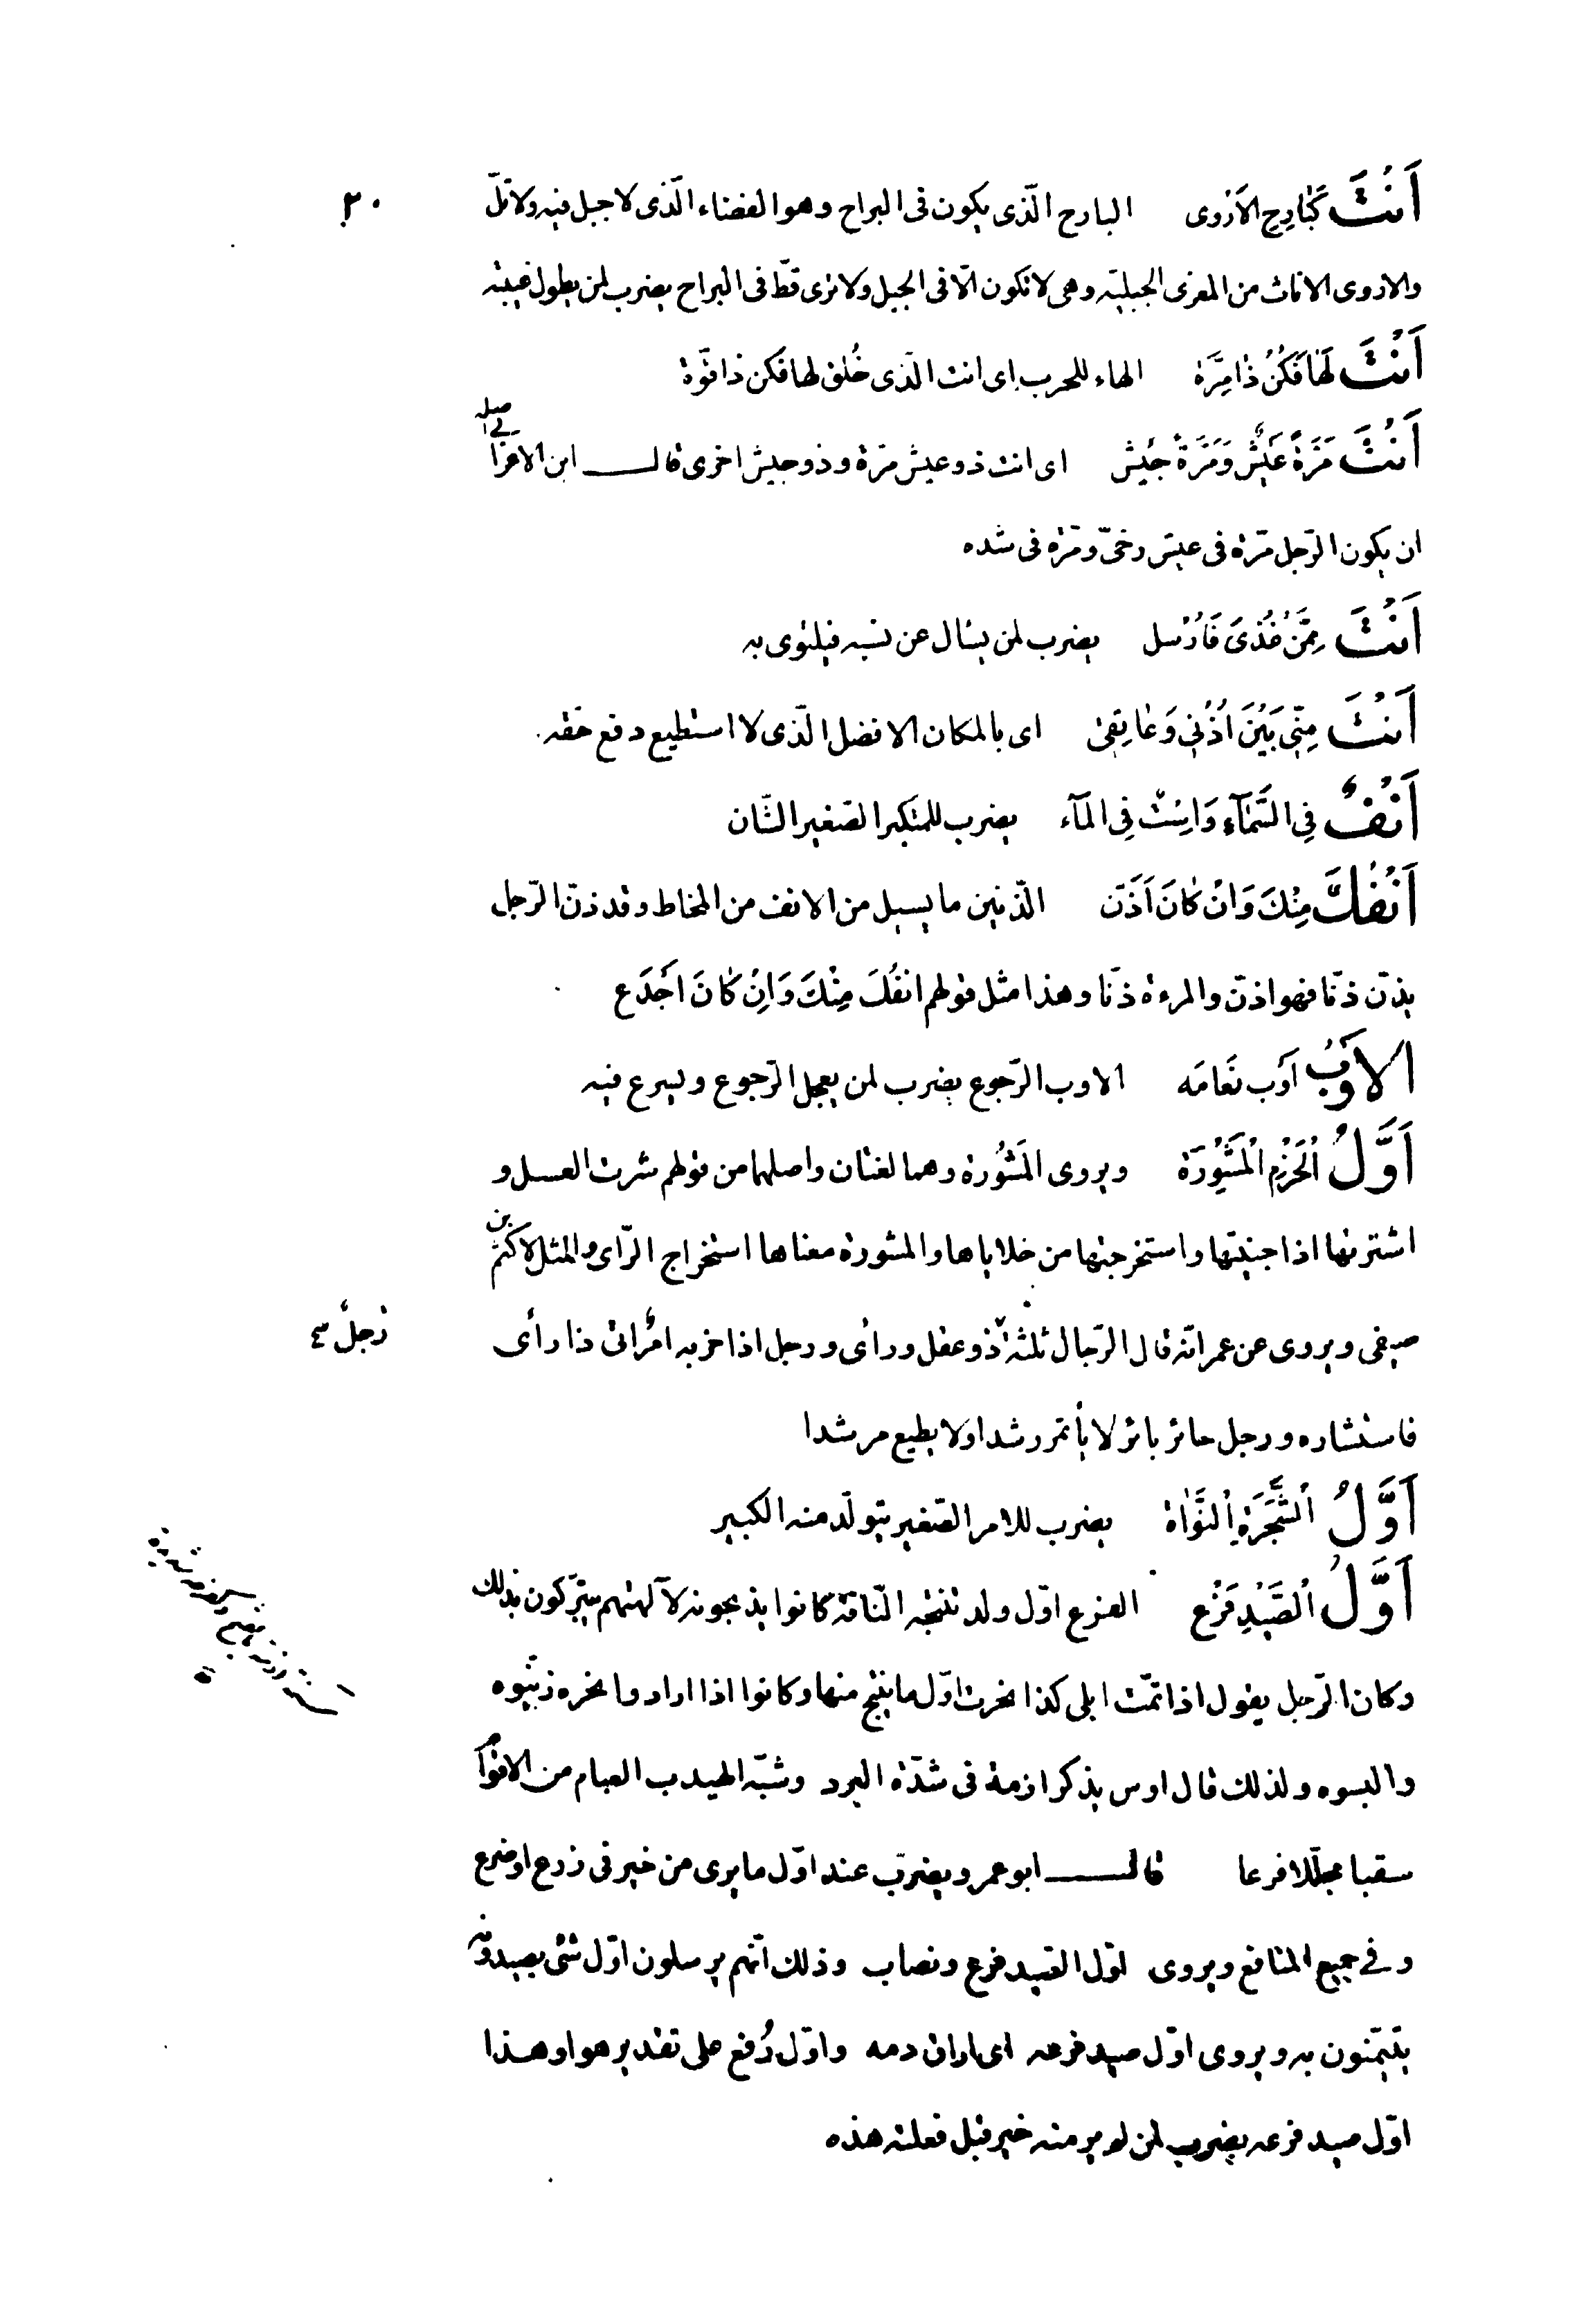 ٢٠
اَنْتَ كَبٰارِحِ الاَرْوى البارح الّذى يكون فى البراح وهو الفضاء الّذى لا جبل فيه ولا تلّ
والاروى الاناث من المعزى الجبليّه وهى لا تكون الّا فى الجبل ولا ترى قطّ فى البراح يضرب لمن يطول غيبته
اَنْتَ لَهٰا فَكُنْ ذٰا مِرَّة الهاء للحرب اى انت الّذى خُلق لها فكن ذا قوّة
اَنْتَ مَرّةً عَيْشٌ وَمَرّةً جَيْش اى انت ذو عيش مرّة وذو جيش اخرى قال ابن الاعرابى اصله
ان يكون الرّجل مرّة فى عيش رخىّ ومرّة فى شده
اَنْتَ مِمَّنْ غُذىَ فَاُرْسل يضرب لمن يسأل عن نسبه فيلتوى به
اَنْتَ مِنّى بَيْنَ اُذُنى وَعٰاتِقى اى بالمكان الافضل الّذى لا استطيع دفع حقّه
اَنْفٌ فِى السَّمٰآءِ وَاسْتٌ فِى المٰآء يضرب للمتكبر الصّغير الشّان
اَنْفُكَ مِنْكَ وَانْ كٰانَ اَذَنّ الذّنين ما يسيل من الانف من المخاط وقد ذنّ الرّجل
يذنّ ذنّا فهو اذنّ والمرءة ذنّا وهذا مثل قولهم انفُكَ مِنْكَ وَاِنْ كٰانَ اَجْدَع
الاَوْبُ اَوْب نَعٰامَه الاوب الرّجوع يضرب لمن يعجل الرّجوع ويسرع فيه
اَوَّلُ الْحَزْمِ الْمَشْوِرَة ويروى المَشُوْرة وهما لغتان واصلهما من قولهم شرت العسل و
اشترتها اذا جنيتها واستخرجتها من خلاياها والمشورة معناها استخراج الرّاى والمثل لاكثم بن
صيفى ويروى عن عمر انّه قال الرّجال ثلثة ذو عقل ورأى ورجل اذا حزبه امرٌ اتى ذا رأى
رجلٌ
فاستشاره ورجل حائر بائر لا يأتمر رشدا ولا يطيع مرشدا
اَوَّلُ الشَّجَرَةِ النَّوٰاة يضرب للامر الصّغير يتولّد منه الكبير
اَوَّلُ الصَّيْدِ فَرَع الفرع اوّل ولد تنتجه النّاقة كانوا يذبحونه لآلهتهم يتبرّكون بذلك
وكان الرّجل يقول اذا تمّت ابلى كذا نحرت اوّل ما ينتج منها وكانوا اذا ارادوا نحره زيّنوه
والبسوه ولذلك قال اوس يذكر ازمة فى شدّة البرد وشبّه الهيدب العبام من الاقوام
سقبا مجلّلا فرعا قال ابو عمرو يضرب عند اوّل ما يرى من خير فى زرع او ضرع
وفى جميع المنافع ويروى اوّل الصّيد فرع ونصاب وذلك انّهم يرسلون اوّل شئ يصيدونه
يتيمّنون به ويروى اوّل صيد فرعه اى اراق دمه واوّل رُفع على تقدير هو او هذا
اوّل صيد فرعه يضرب لمن لم ير منه خير قبل فعلته هذه